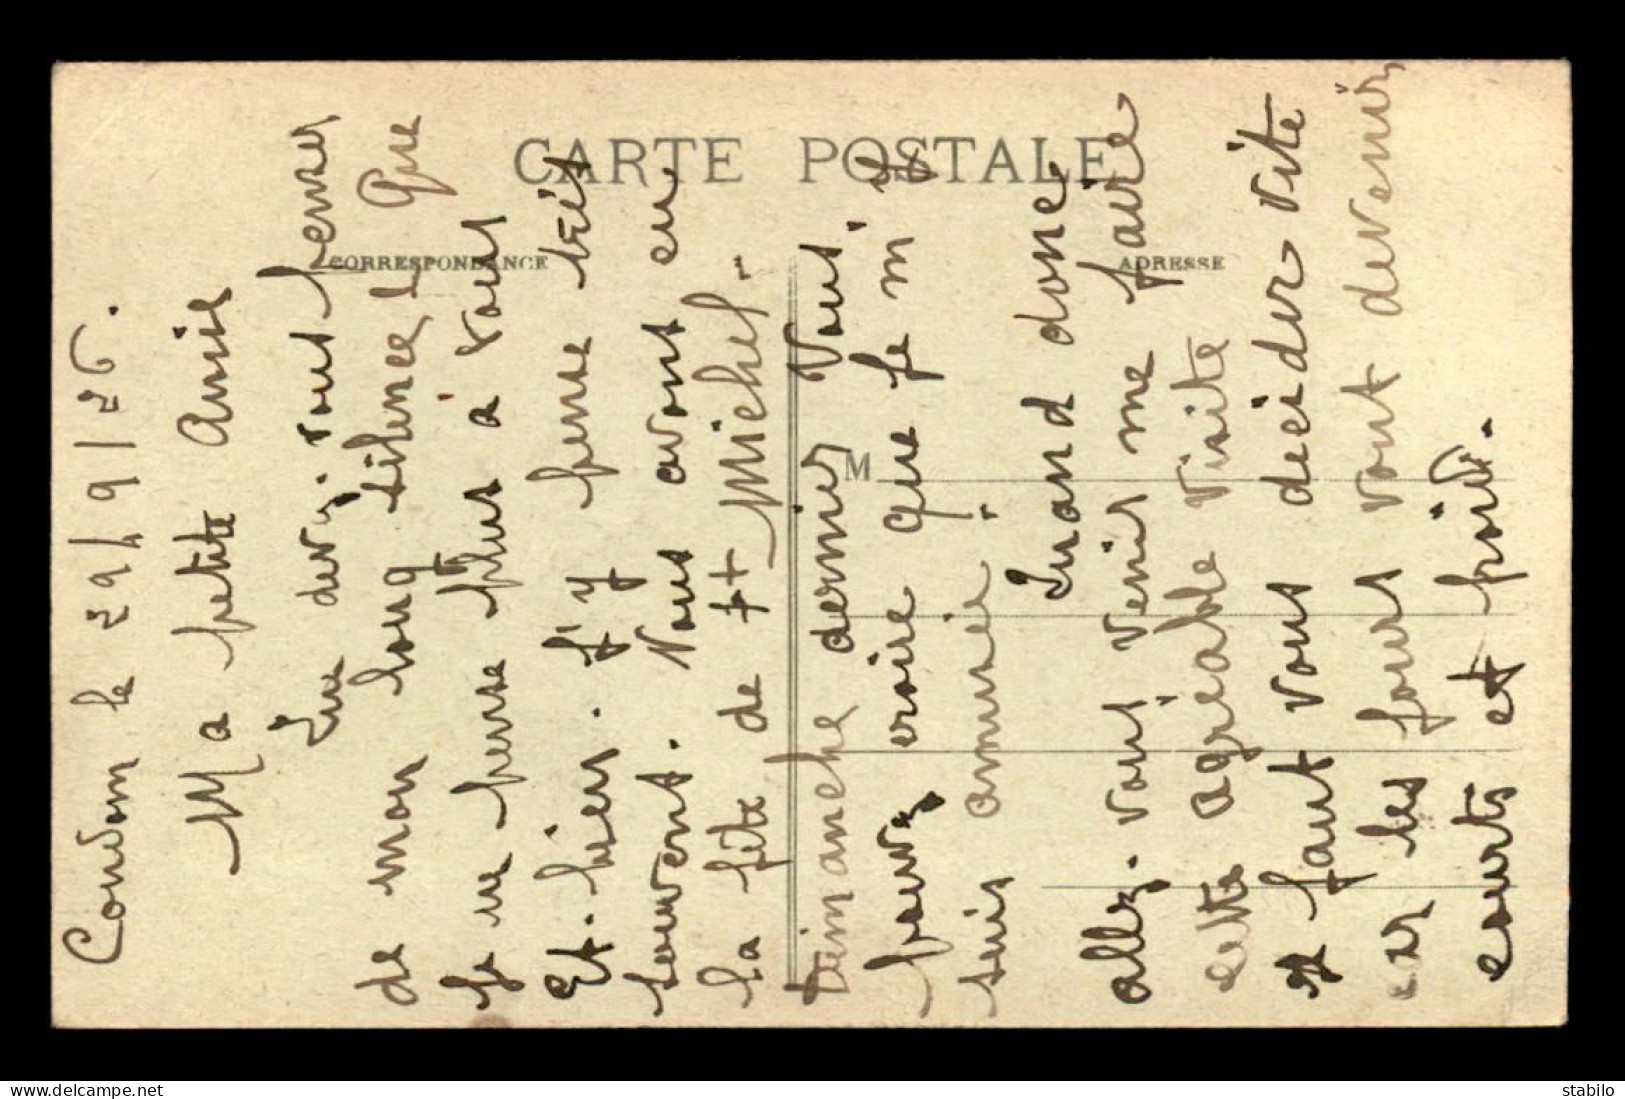 CARTE POSTALE
CORRESPONDANCE
ADRESSE
M
Condom le 29/9/26.
Ma petite Amie
Que devez vous penser
de mon long silence! Que
je ne pense plus à vous
Et. bien. j'y pense très
souvent. Nous avons eu
la fête de St Michel.
Dimanche dernier Vous
pouvez croire que je m'y
suis amusée.
Quand donc
allez. vous venir me faire
cette agréable visite
il faut vous décider vite
car les jours vont devenir
courts et froids.
delcampe.net
stabilo